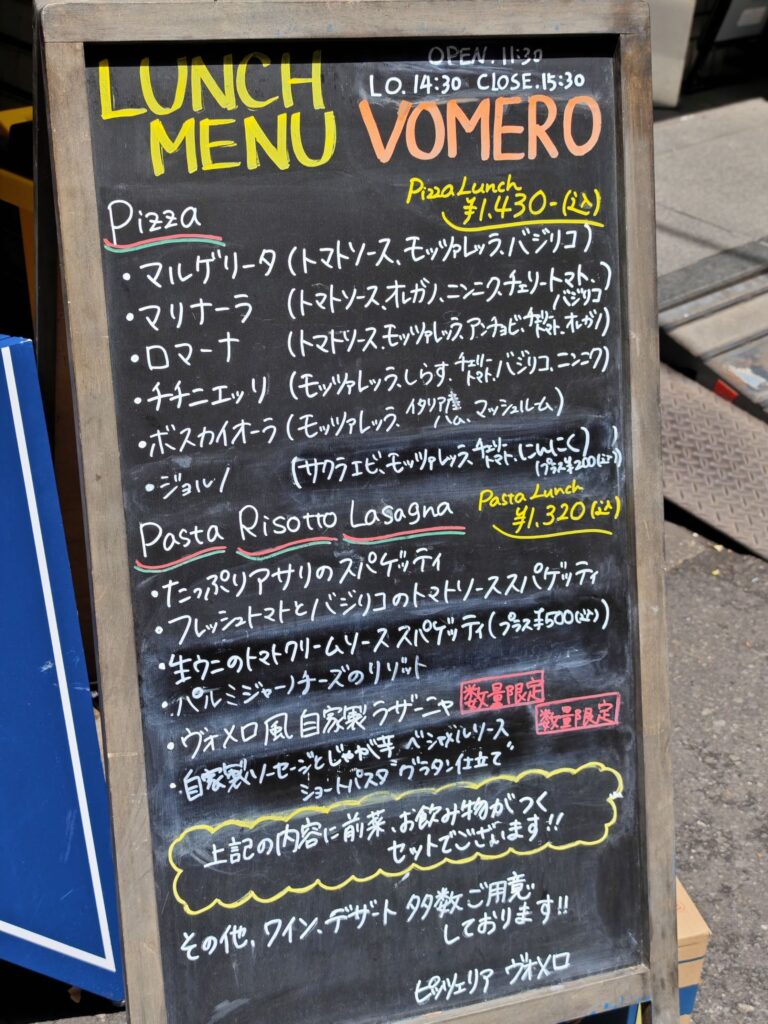 OPEN. 11:30
L.O. 14:30 CLOSE. 15:30
LUNCH MENU VOMERO
Pizza
Pizza Lunch ¥1.430-(込)
・マルゲリータ (トマトソース、モッツァレッラ、バジリコ)
・マリナーラ (トマトソース、オレガノ、ニンニク、チェリートマト、バジリコ)
・ロマーナ (トマトソース、モッツァレッラ、アンチョビ、チェリートマト、オレガノ)
・チチニエッリ (モッツァレッラ、しらす、チェリートマト、バジリコ、ニンニク)
・ボスカイオーラ (モッツァレッラ、イタリア産ハム、マッシュルーム)
・ジョルノ (サクラエビ、モッツァレッラ、チェリートマト、にんにく) (プラス¥200(込))
Pasta Risotto Lasagna
Pasta Lunch ¥1.320(込)
・たっぷりアサリのスパゲッティ
・フレッシュトマトとバジリコのトマトソーススパゲッティ
・生ウニのトマトクリームソース スパゲッティ(プラス¥500(込))
・パルミジャーノチーズのリゾット
・ヴォメロ風 自家製 ラザーニャ 数量限定
・自家製ソーセージとじゃが芋 ベシャメルソース 数量限定
ショートパスタ"グラタン仕立て"
上記の内容に前菜、お飲み物がつく
セットでございます!!
その他、ワイン、デザート 多数ご用意
しております!!
ピッツェリア ヴォメロ